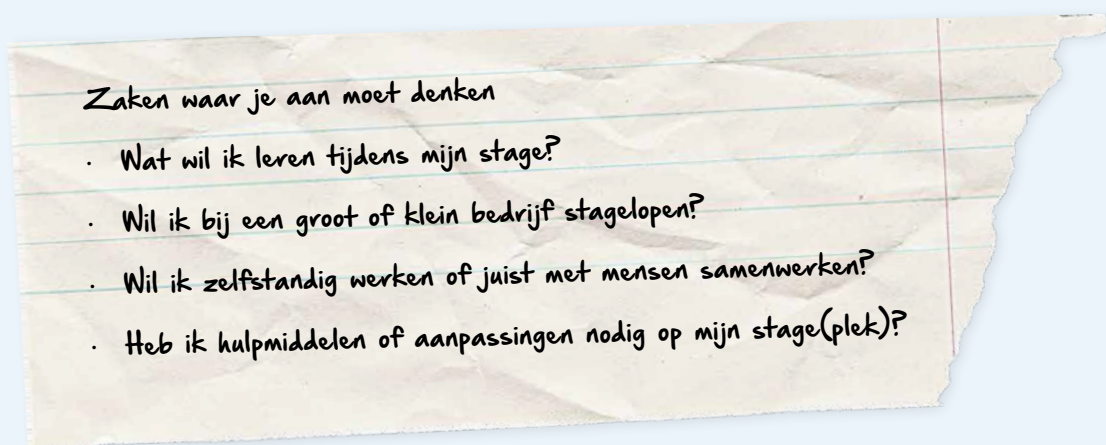 Zaken waar je aan moet denken
· Wat wil ik leren tijdens mijn stage?
· Wil ik bij een groot of klein bedrijf stagelopen?
· Wil ik zelfstandig werken of juist met mensen samenwerken?
· Heb ik hulpmiddelen of aanpassingen nodig op mijn stage(plek)?